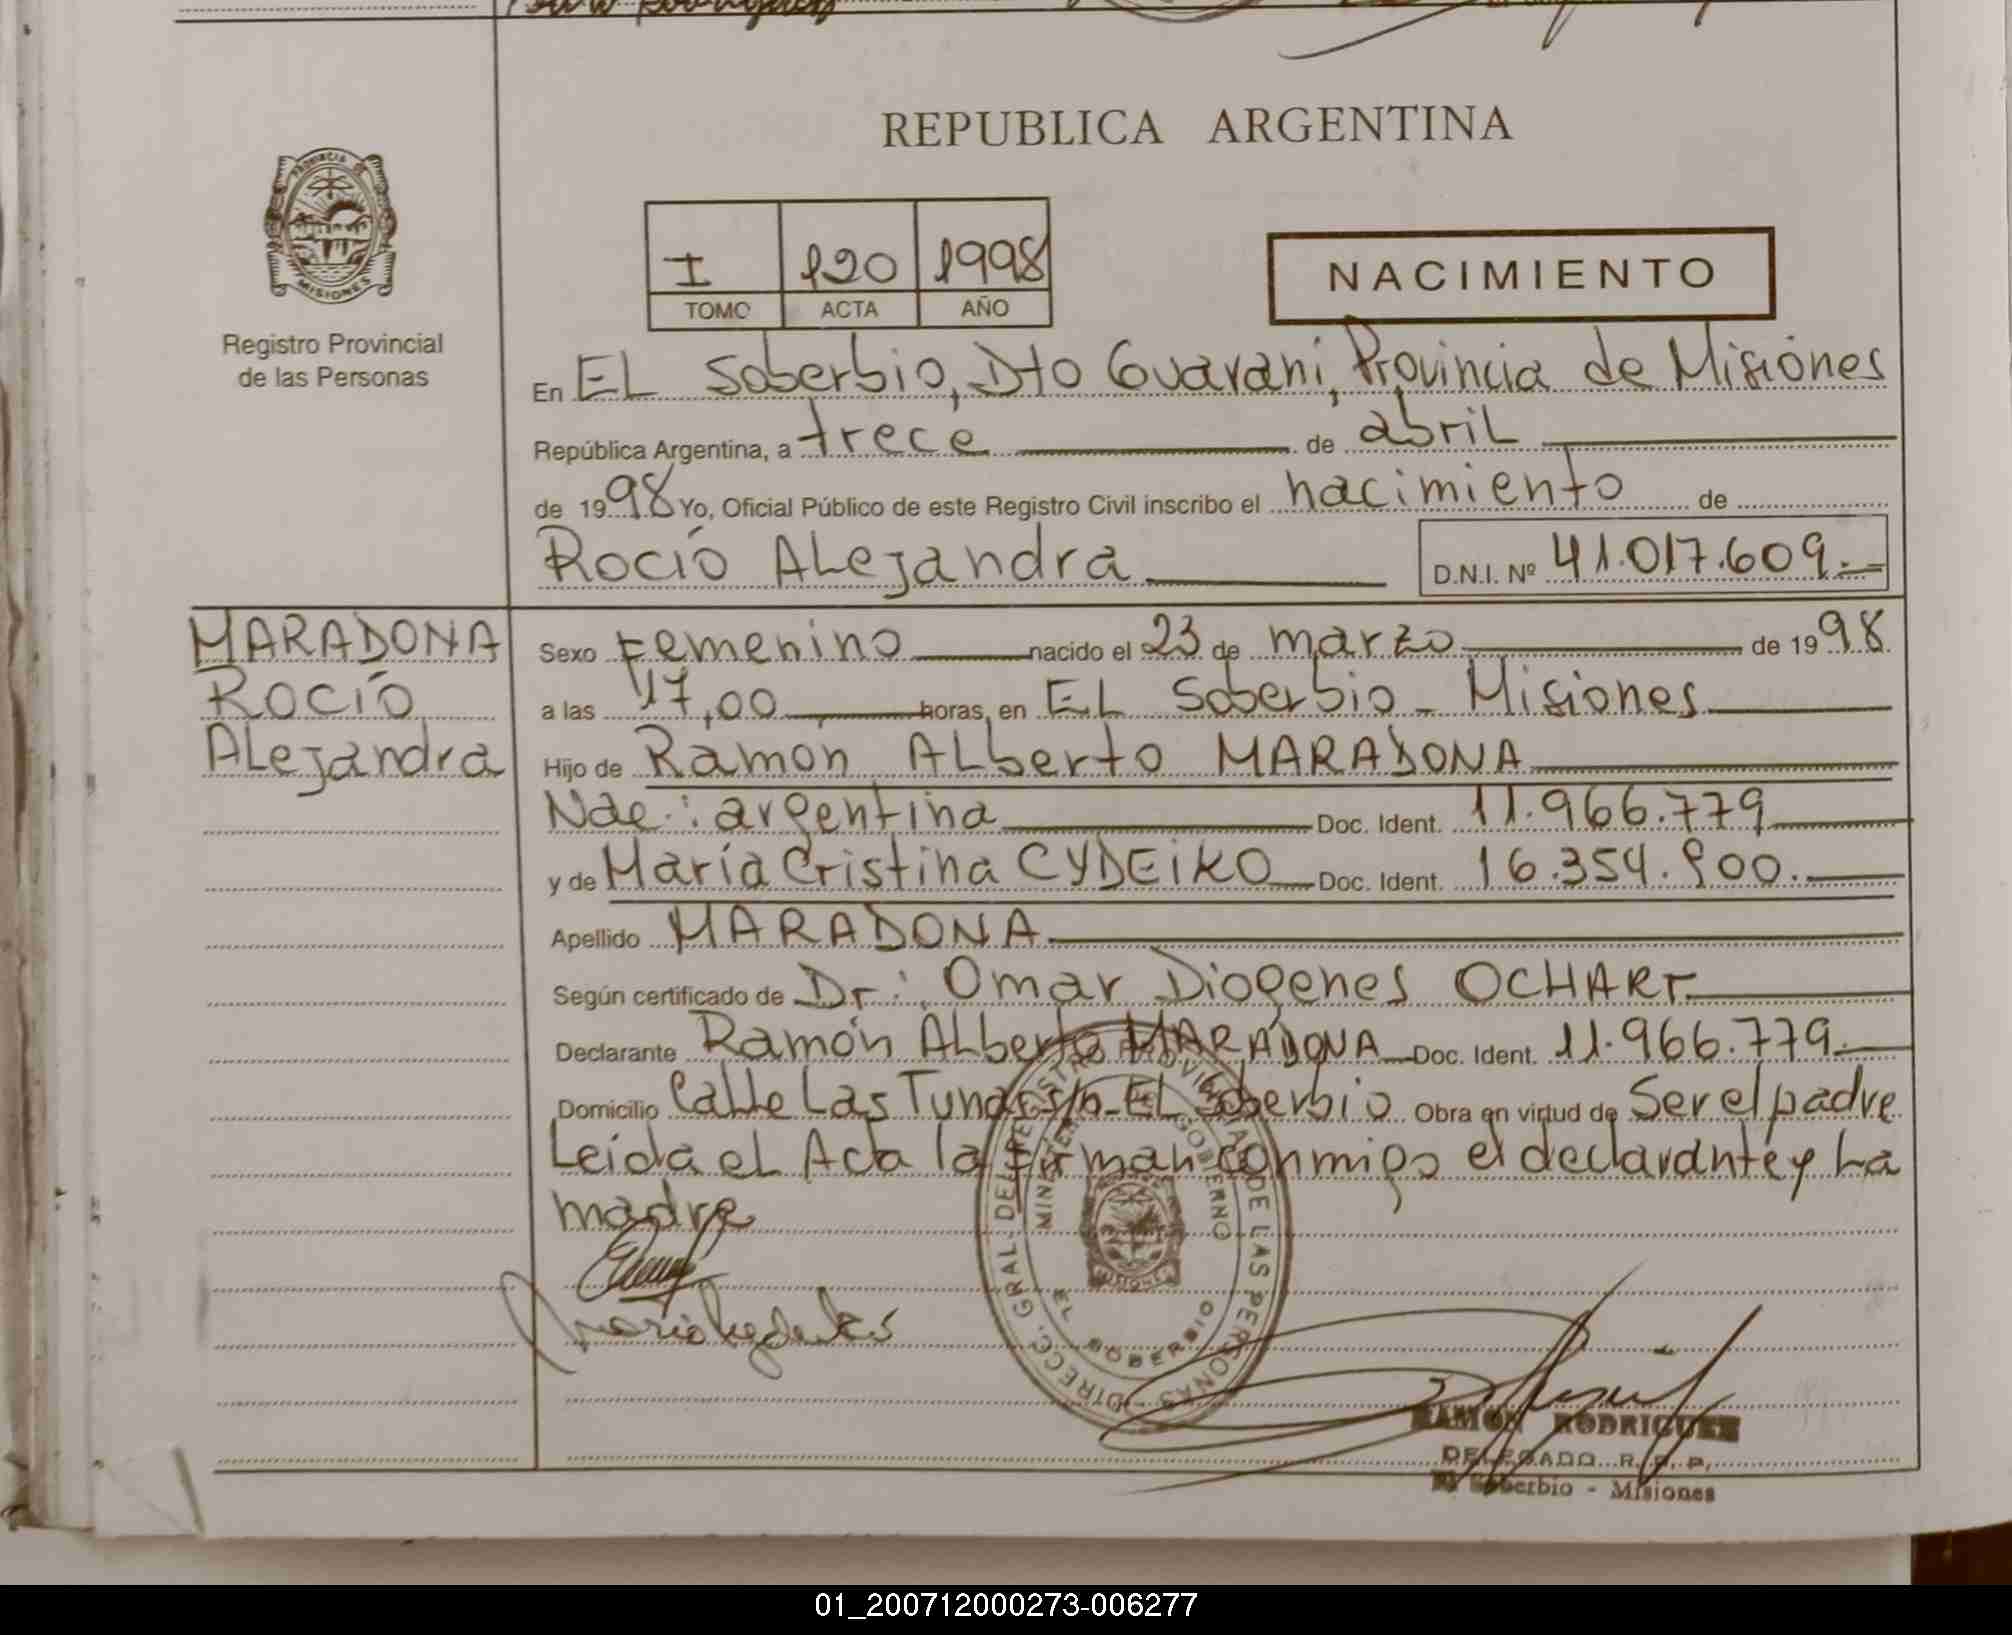 REPUBLICA ARGENTINA
PROVINCIA DE
MISIONES
Registro Provincial
de las Personas
I 120 1998
TOMO ACTA AÑO
NACIMIENTO
En EL Soberbio, Dto Guaraní, Provincia de Misiones
República Argentina, a trece de abril
de 1998 Yo, Oficial Público de este Registro Civil inscribo el nacimiento de
Rocío ALejandra D.N.I. Nº 41.017.609.-
MARADONA
Rocío
ALejandra
Sexo Femenino nacido el 23 de marzo de 1998
a las 17,00 horas, en EL Soberbio - Misiones
Hijo de Ramón ALberto MARADONA
Nac.: argentina Doc. Ident. 11.966.779
y de María Cristina CYDEIKO Doc. Ident. 16.354.900.
Apellido MARADONA
Según certificado de Dr.: Omar Diogenes OCHART
Declarante Ramón ALberto MARADONA Doc. Ident. 11.966.779.
Domicilio Calle Las Tunas s/n - EL Soberbio Obra en virtud de Ser el padre
Leída el Acta la firman conmigo el declarante y La
madre
DIRECC. GRAL. DEL REGISTRO PROVINCIAL DE LAS PERSONAS
MINISTERIO GOBIERNO
EL SOBERBIO
MISIONES
RAMON RODRIGUEZ
DELEGADO R. P. P.
El Soberbio - Misiones
01_200712000273-006277